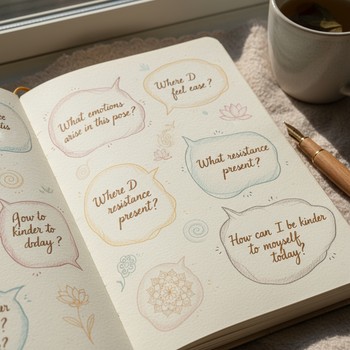 kinder to
What emotions
arise in this pose?
Where D
feel ease?
Where D
resistance
present?
What resistance
present?
How can I be kinder
to mouself
today?